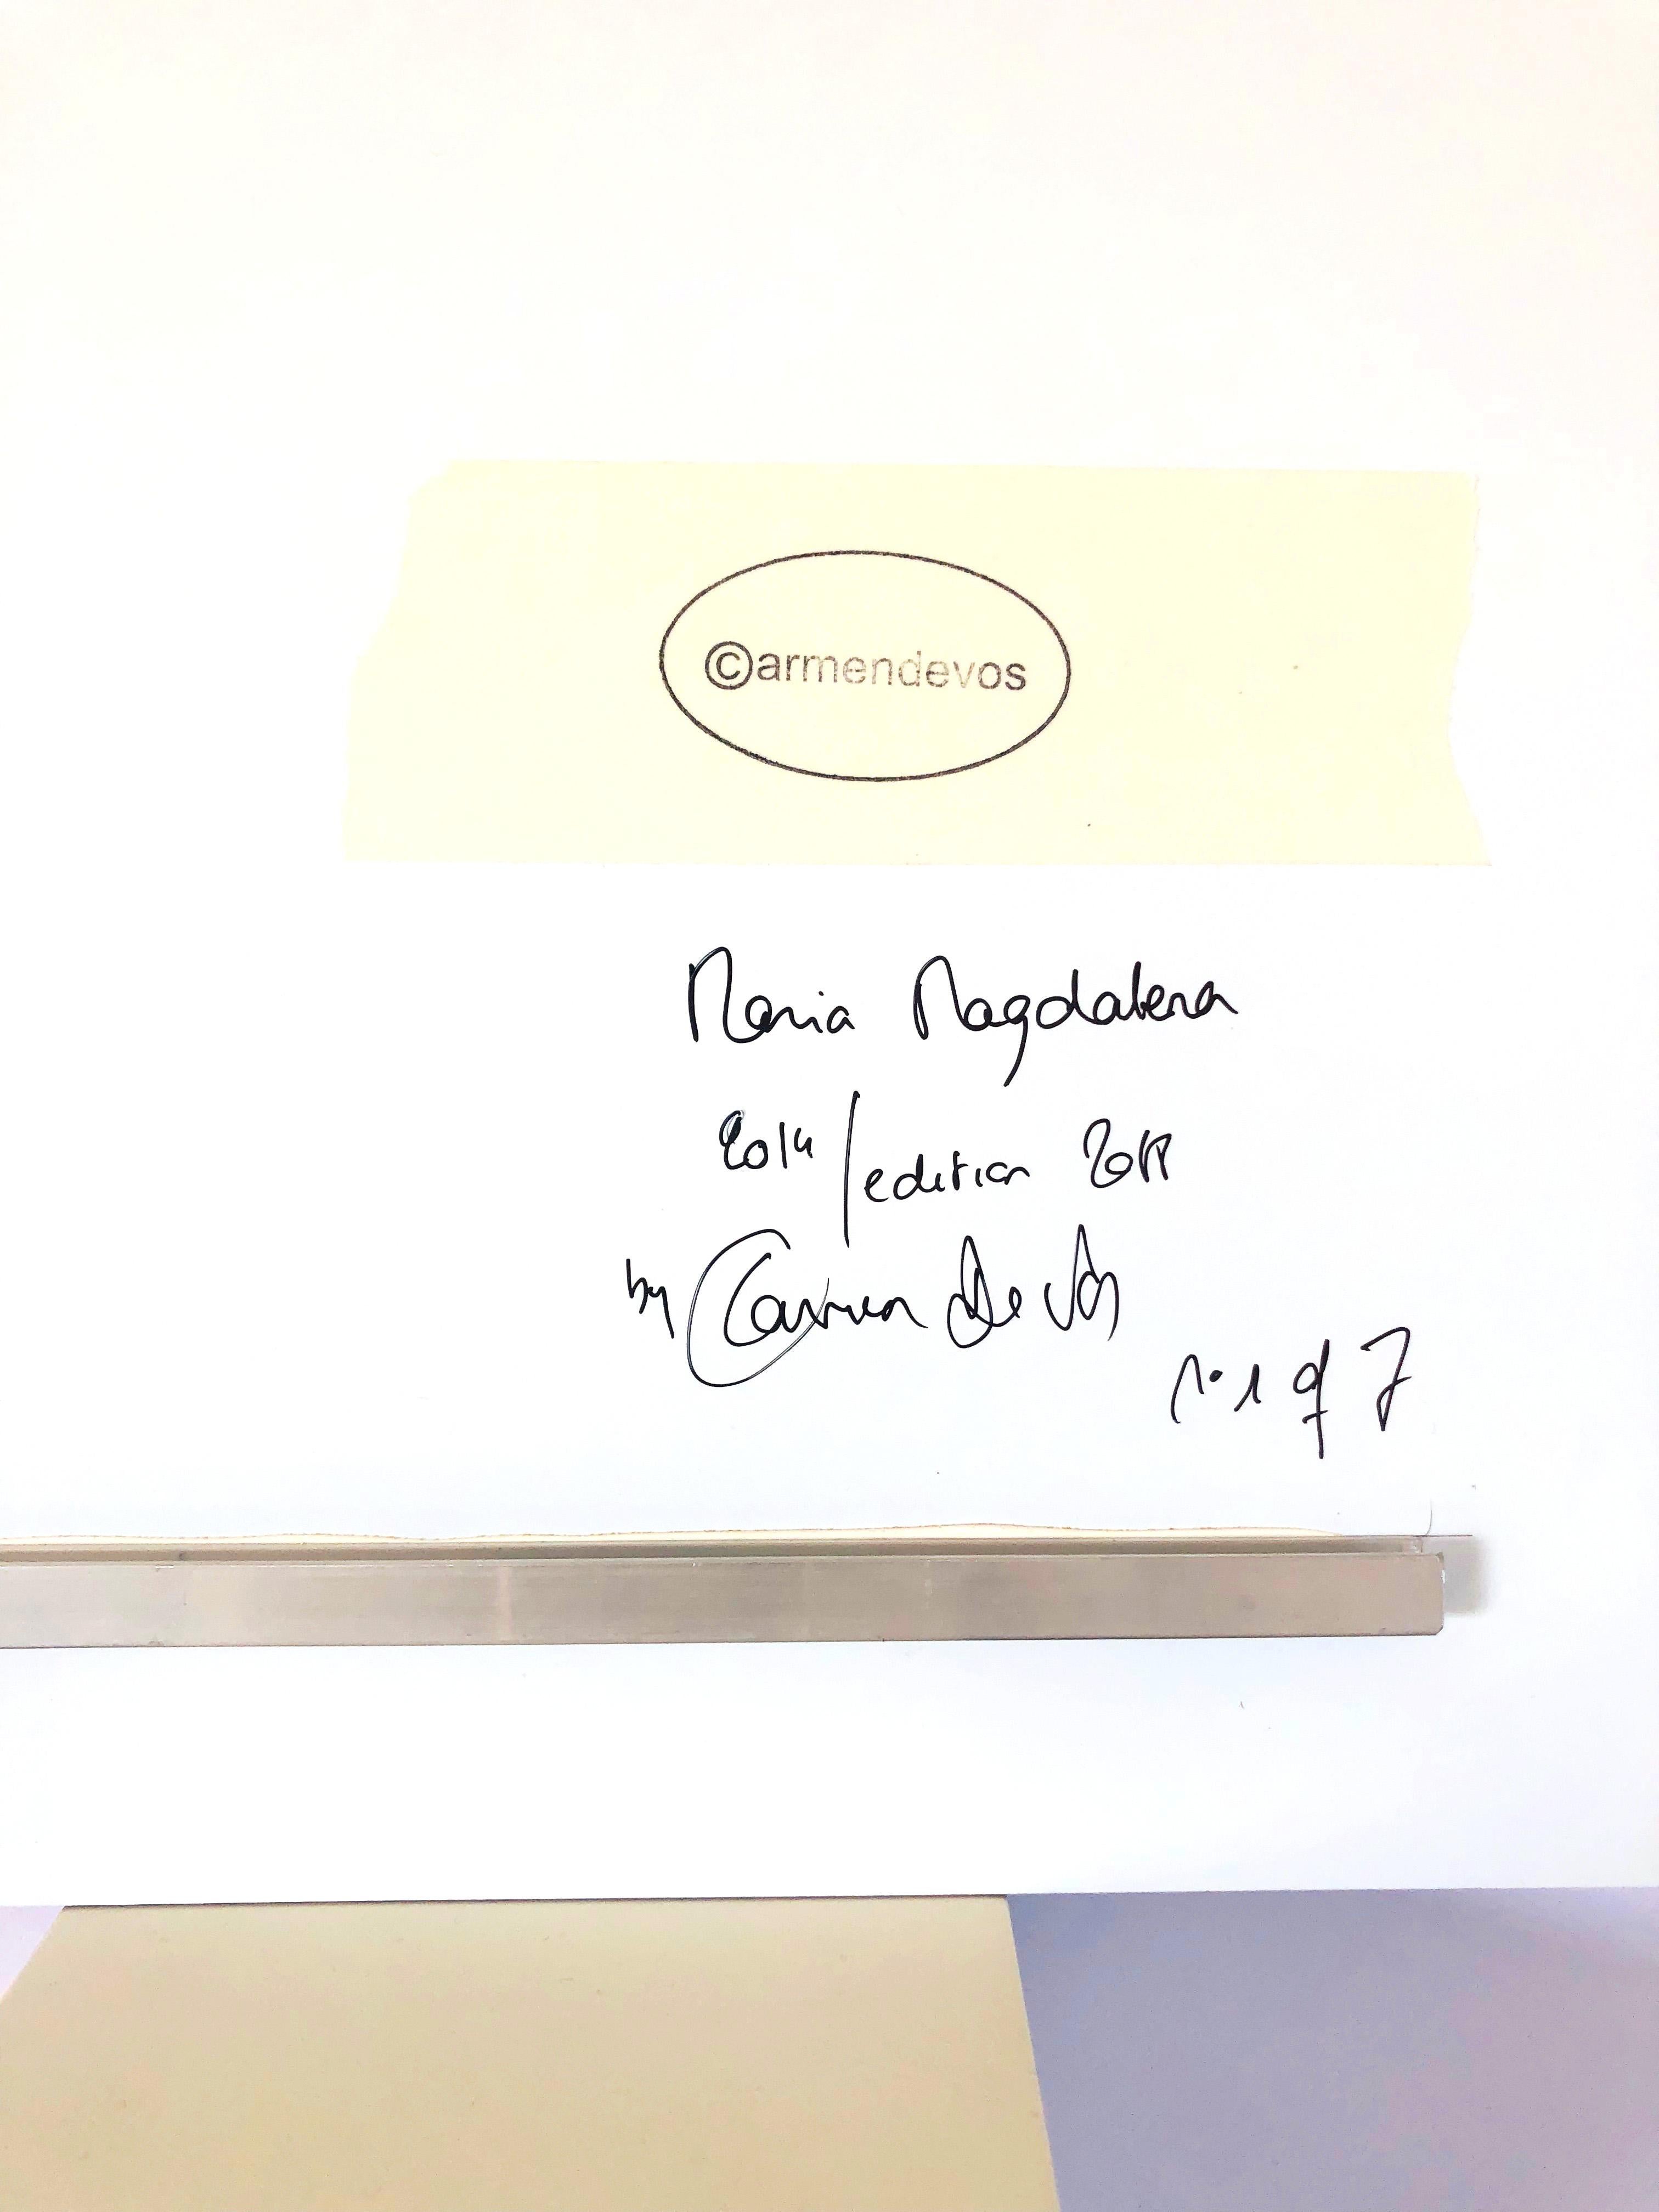 ©armendevos
Maria Magdalena
2014 / edition 2018
by Carmen De Vos
n° 1 of 7